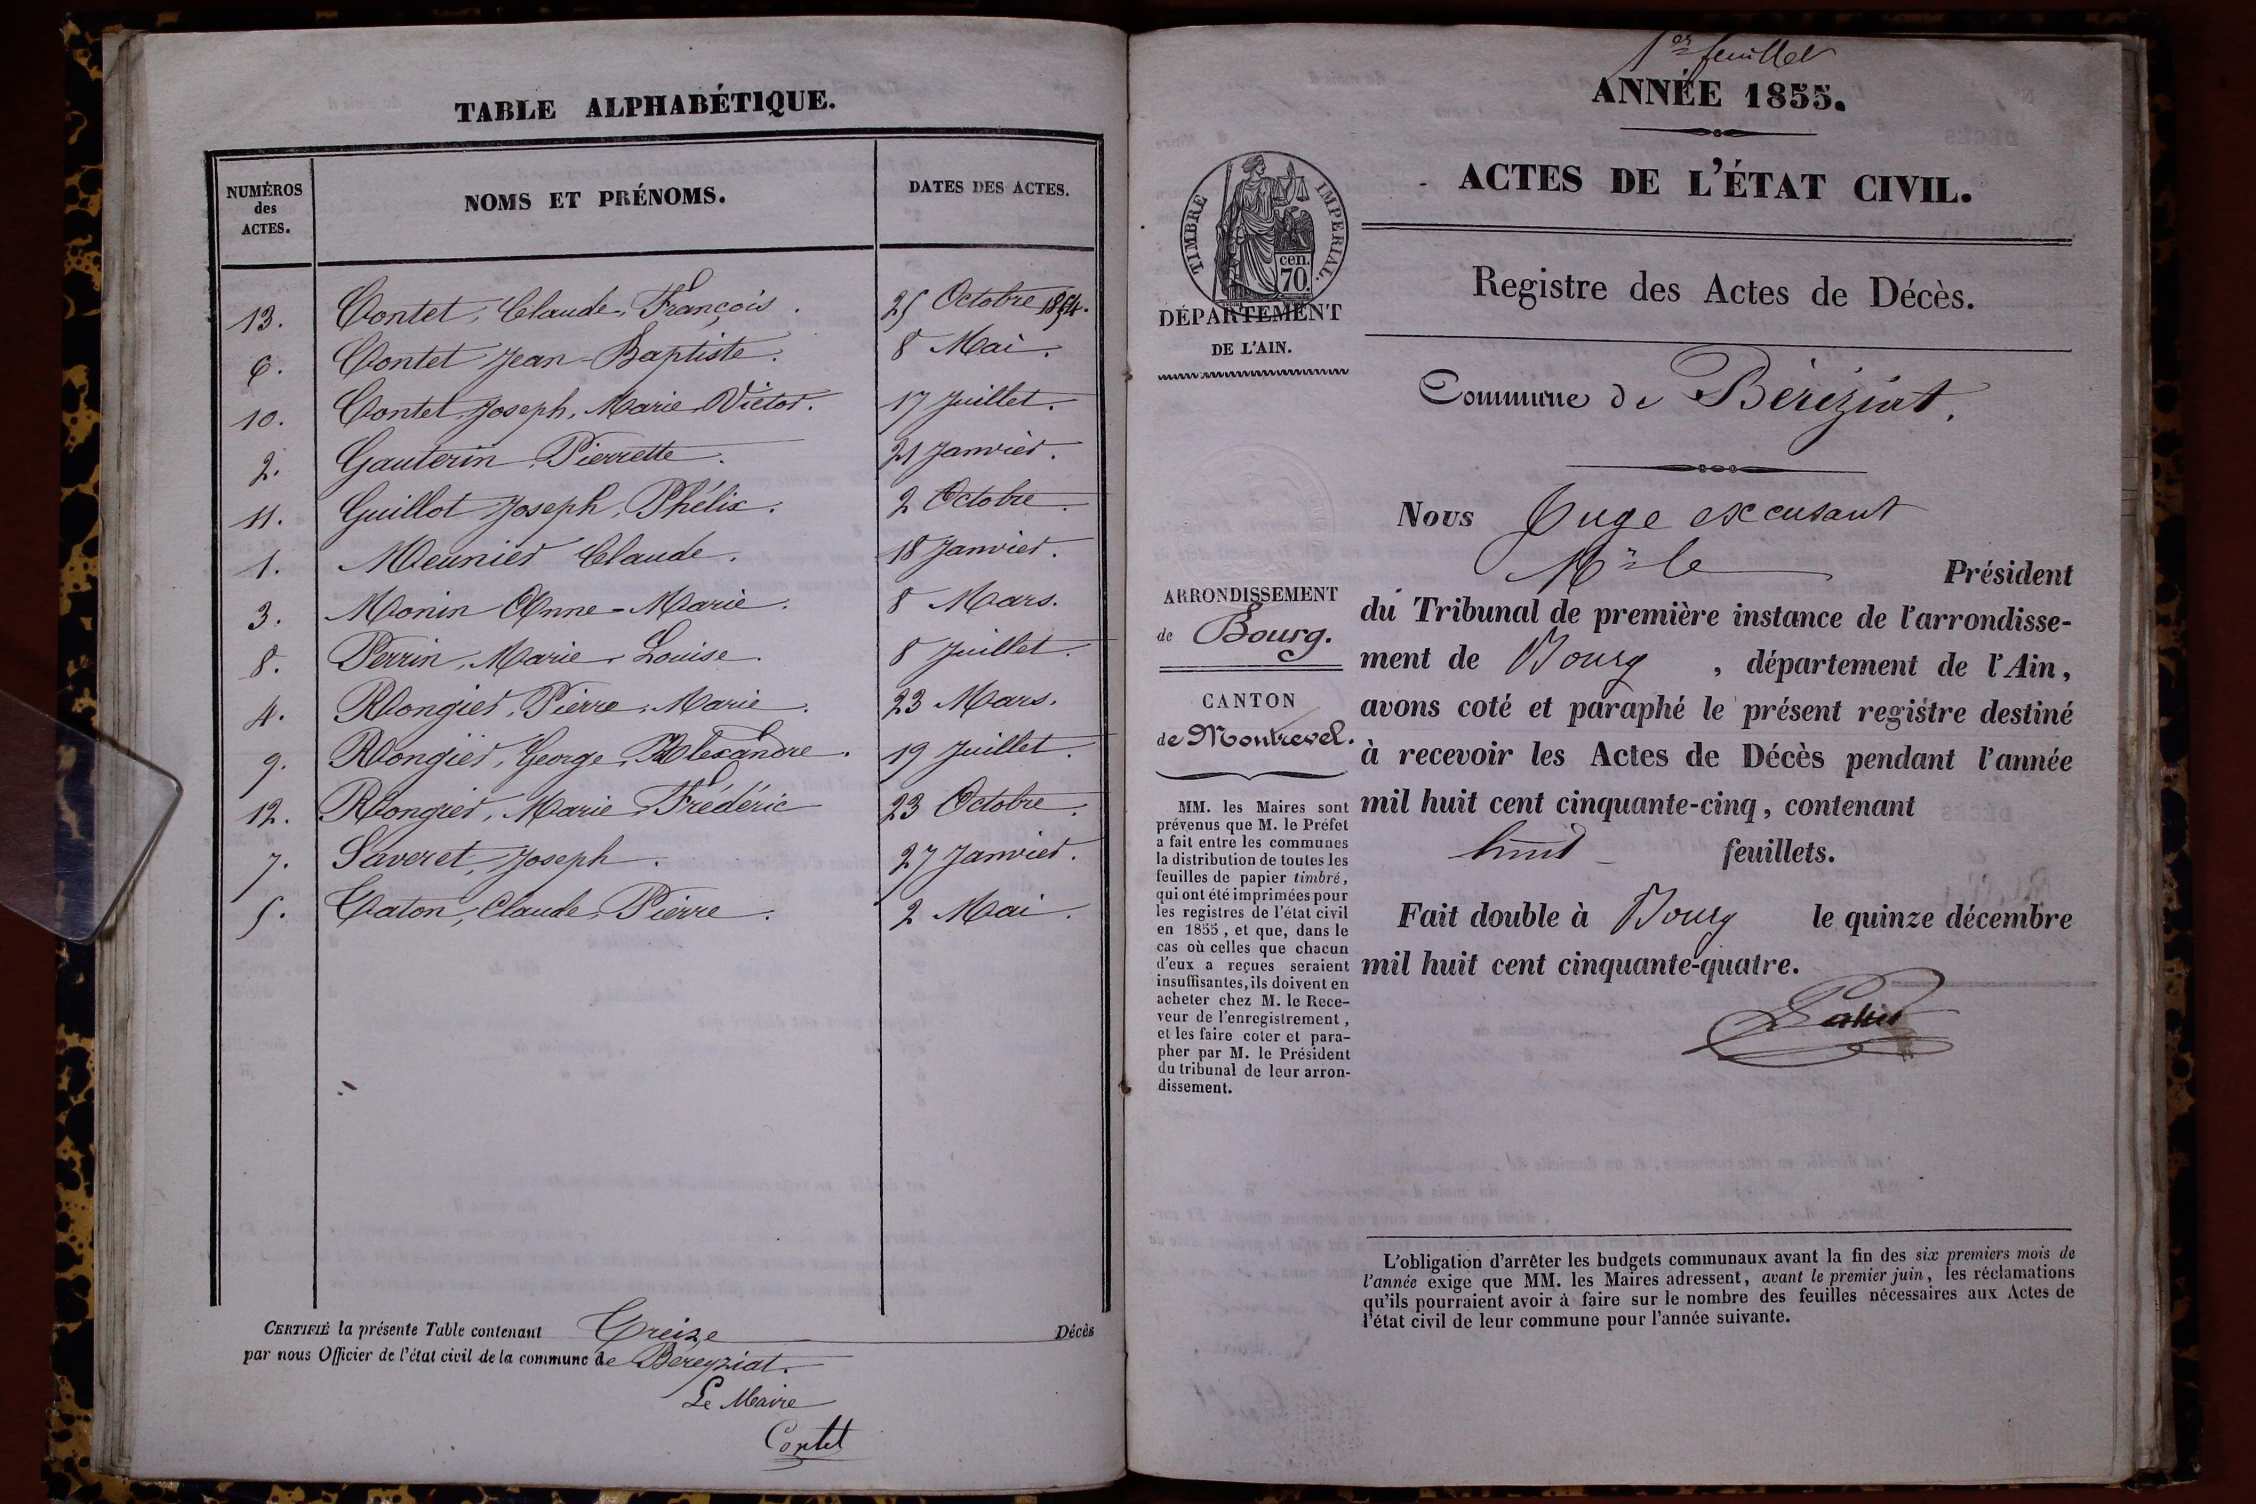 TABLE ALPHABÉTIQUE.
NUMÉROS des ACTES. NOMS ET PRÉNOMS. DATES DES ACTES.
13. Contet, Claude, François. 25 Octobre 1854.
6. Contet Jean-Baptiste. 8 Mai.
10. Contet Joseph, Marie Victor. 17 Juillet.
2. Gauterin Pierrette. 21 Janvier.
11. Guillot Joseph, Phélix. 2 Octobre.
1. Meunier Claude. 18 Janvier.
3. Monin Anne-Marie. 8 Mars.
8. Perrin, Marie Louise. 8 Juillet.
4. Rongier, Pierre, Marie. 23 Mars.
9. Rongier, George, Alexandre. 19 Juillet.
12. Rongier, Marie Frédéric 23 Octobre.
7. Saveret, Joseph. 27 Janvier.
5. Vaton, Claude, Pierre. 2 Mai.
CERTIFIÉ la présente Table contenant Treize Décès
par nous Officier de l'état civil de la commune de Béreyziat.
Le Maire
Contet
1er feuillet
ANNÉE 1855.
ACTES DE L'ÉTAT CIVIL.
TIMBRE IMPERIAL.
cen.
70.
DÉPARTEMENT
DE L'AIN.
Registre des Actes de Décès.
Commune de Béréziat.
ARRONDISSEMENT
de Bourg.
CANTON
de Montrevel.
MM. les Maires sont
prévenus que M. le Préfet
a fait entre les communes
la distribution de toutes les
feuilles de papier timbré,
qui ont été imprimées pour
les registres de l'état civil
en 1855, et que, dans le
cas où celles que chacun
d'eux a reçues seraient
insuffisantes, ils doivent en
acheter chez M. le Rece-
veur de l'enregistrement,
et les faire coter et para-
pher par M. le Président
du tribunal de leur arron-
dissement.
Nous Juge excusant
Mr le Président
du Tribunal de première instance de l'arrondisse-
ment de Bourg, département de l'Ain,
avons coté et paraphé le présent registre destiné
à recevoir les Actes de Décès pendant l'année
mil huit cent cinquante-cinq, contenant
huit feuillets.
Fait double à Bourg le quinze décembre
mil huit cent cinquante-quatre.
L'obligation d'arrêter les budgets communaux avant la fin des six premiers mois de
l'année exige que MM. les Maires adressent, avant le premier juin, les réclamations
qu'ils pourraient avoir à faire sur le nombre des feuilles nécessaires aux Actes de
l'état civil de leur commune pour l'année suivante.